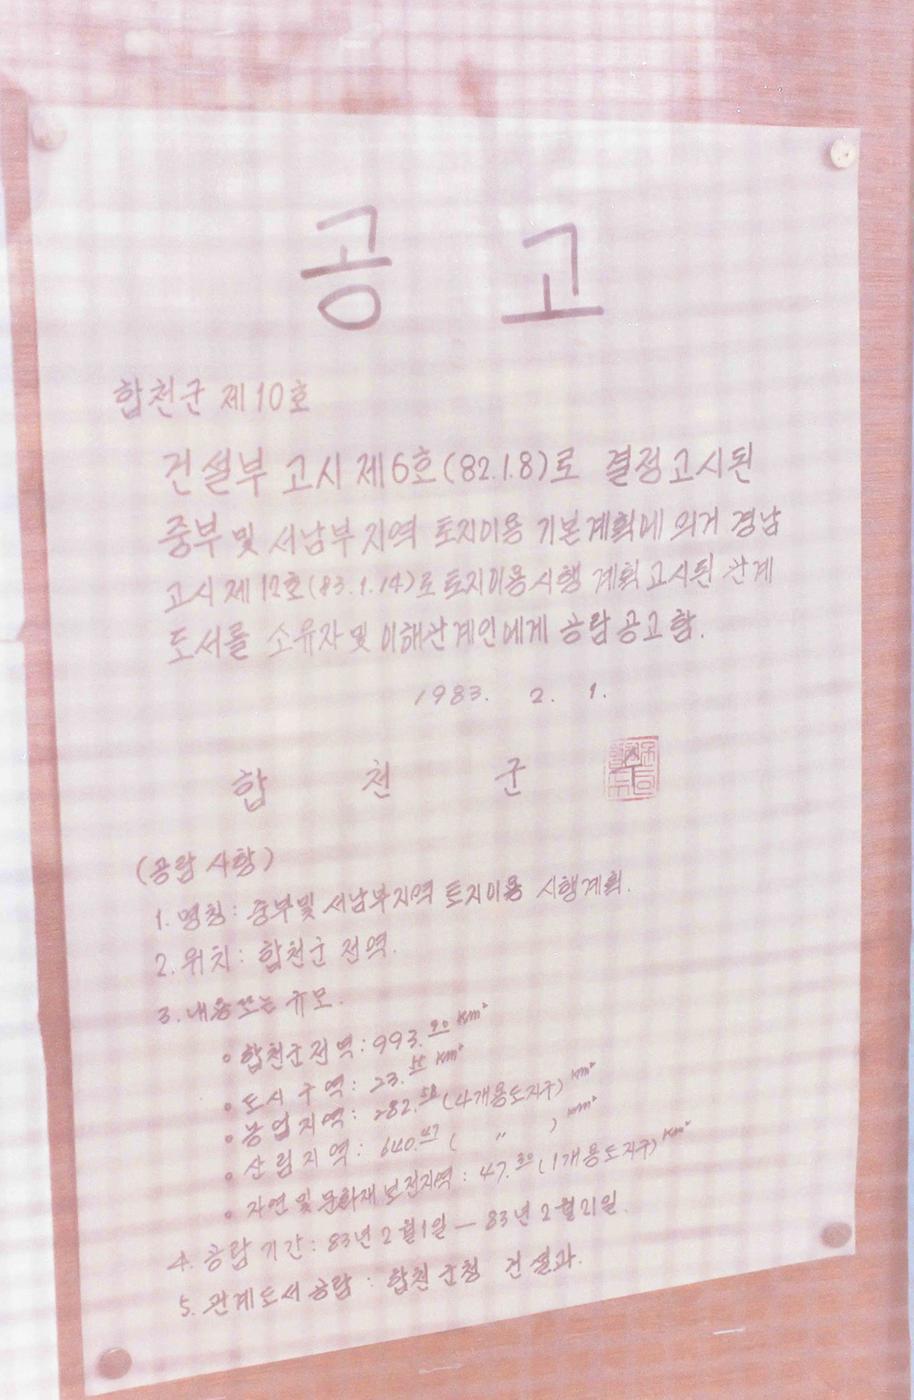 공 고
합천군 제10호
건설부 고시 제6호(82.1.8)로 결정고시된
중부 및 서남부 지역 토지이용 기본계획에 의거 경남
고시 제12호(83.1.14)로 토지이용시행 계획 고시된 관계
도서를 소유자 및 이해관계인에게 공람 공고함.
1983. 2. 1.
합 천 군
(공람 사항)
1. 명칭 : 중부및 서남부지역 토지이용 시행계획.
2. 위치 : 합천군 전역.
3. 내용또는 규모.
• 합천군전역 : 993.90 Km²
• 도시 구역 : 23.55 Km²
• 농업지역 : 282.58 (4개용도지구) Km²
• 산림지역 : 640.47 ( 〃 ) Km²
• 자연 및 문화재보전지역 : 47.30 (1개용도지구) Km²
4. 공람 기간 : 83년 2월1일 — 83년 2월21일.
5. 관계도서 공람 : 합천군청 건설과.